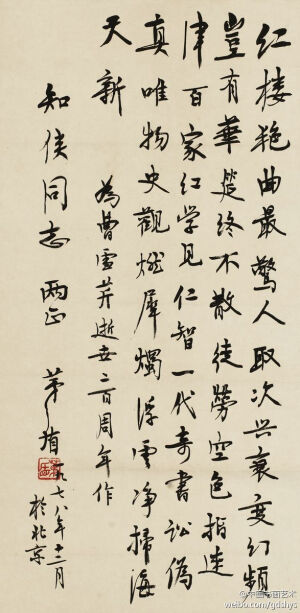 红楼艳曲最驚人取次兴衰变幻频
豈有華筵终不散徒劳空色指迷
津百家红学見仁智一代奇書訟偽
真唯物史觀燃犀燭浮雲净掃海
天新
为曹雪芹逝世二百周年作
知侠同志两正 茅盾
一九七八年十二月
於北京
weibo.com/gdshys